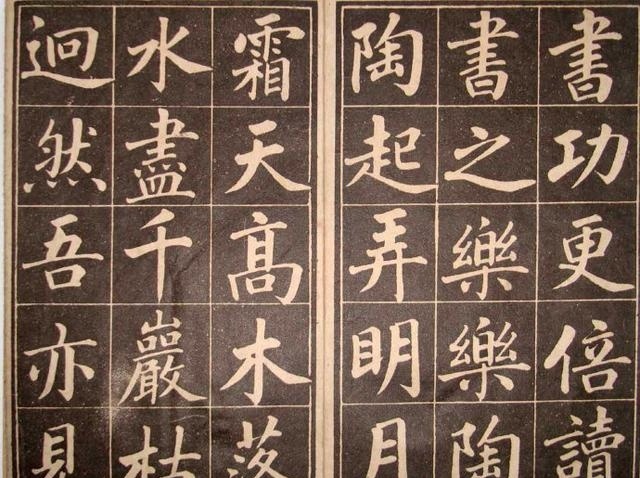 書功更倍讀
書之樂樂陶
陶起弄明月
霜天高木落
水盡千巖枯
迥然吾亦見